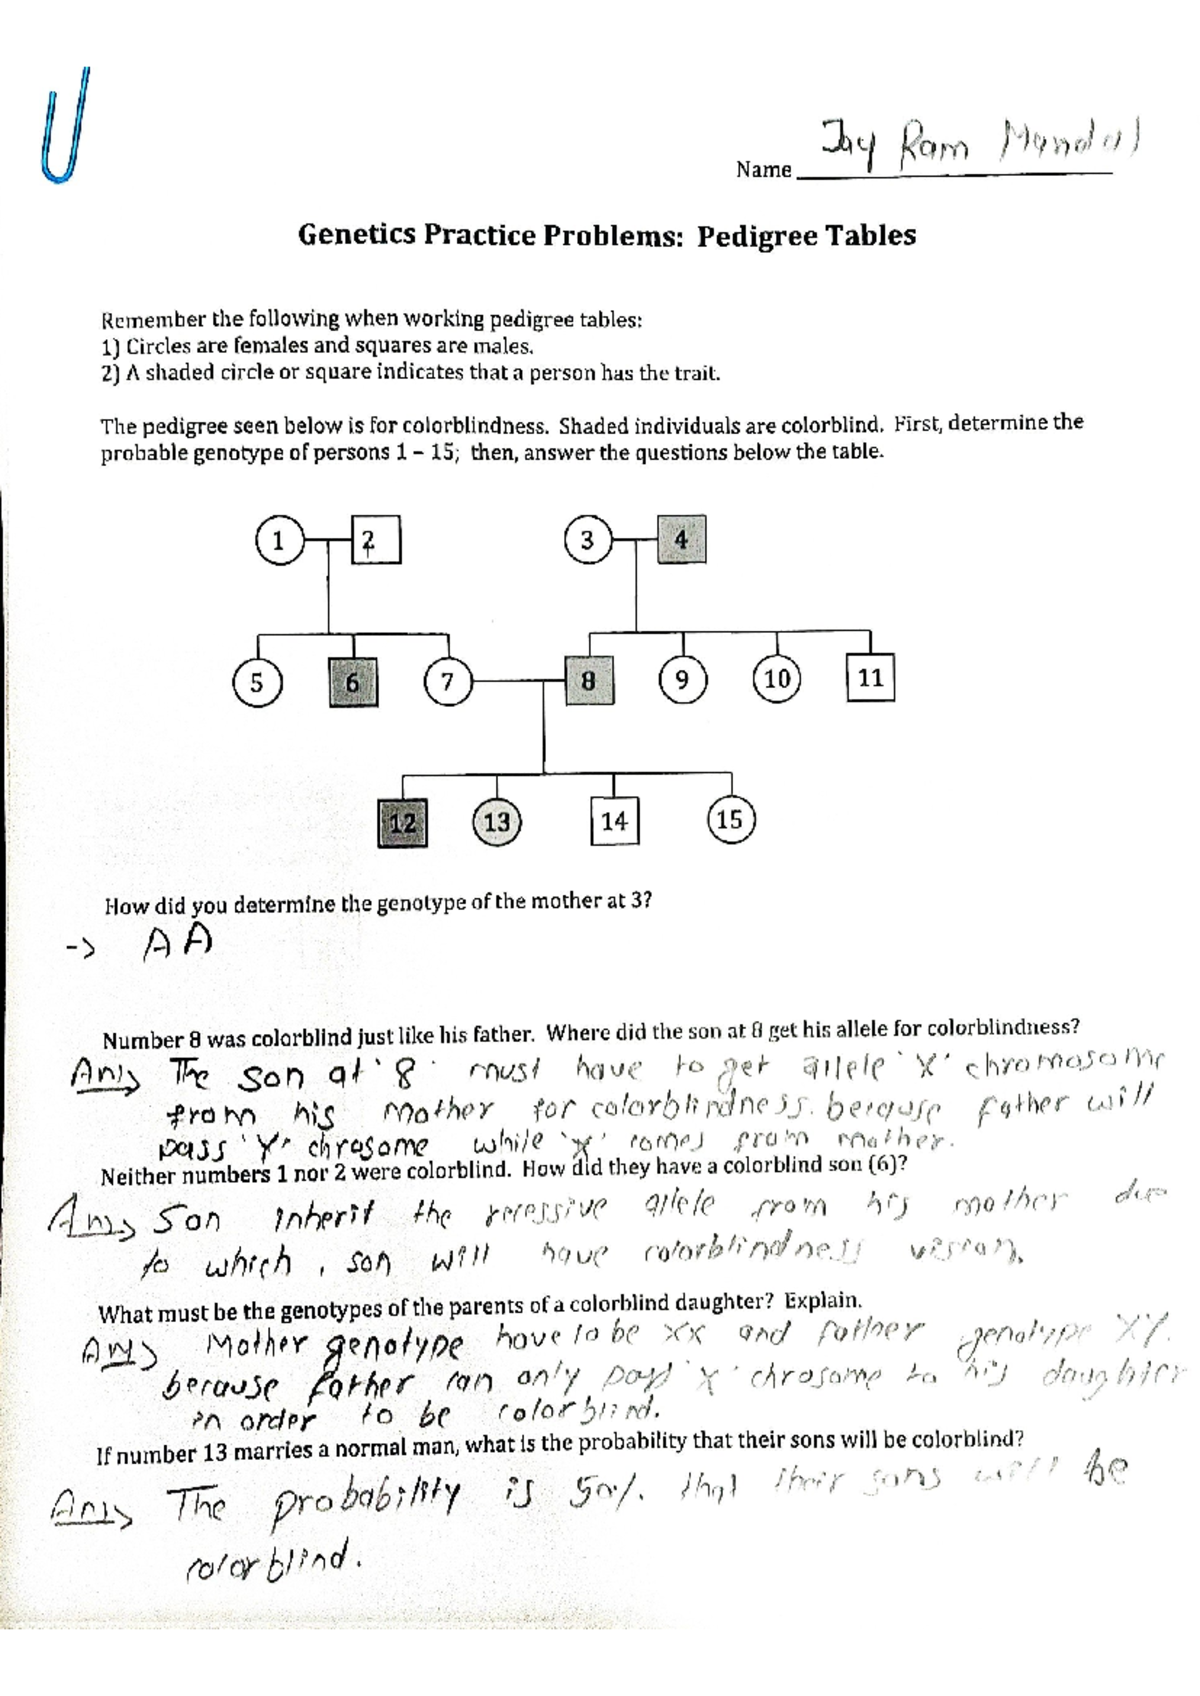 Name Jay Ram Mandal
Genetics Practice Problems: Pedigree Tables
Remember the following when working pedigree tables:
1) Circles are females and squares are males.
2) A shaded circle or square indicates that a person has the trait.
The pedigree seen below is for colorblindness. Shaded individuals are colorblind. First, determine the
probable genotype of persons 1 – 15; then, answer the questions below the table.
1 2 3 4
5 6 7 8 9 10 11
12 13 14 15
How did you determine the genotype of the mother at 3?
-> AA
Number 8 was colorblind just like his father. Where did the son at 8 get his allele for colorblindness?
Ans> The son at '8' must have to get allele 'X' chromosome
from his mother for colorblindness. because father will
pass 'Y' chrosome while 'X' comes from mother.
Neither numbers 1 nor 2 were colorblind. How did they have a colorblind son (6)?
Ans> Son inherit the recessive allele from his mother due
to which, son will have colorblindness vision.
What must be the genotypes of the parents of a colorblind daughter? Explain.
Ans> Mother genotype have to be XX and father genotype XY.
because father can only pass 'X' chrosome to his daughter
in order to be colorblind.
If number 13 marries a normal man, what is the probability that their sons will be colorblind?
Ans> The probability is 50%. that their sons will be
colorblind.